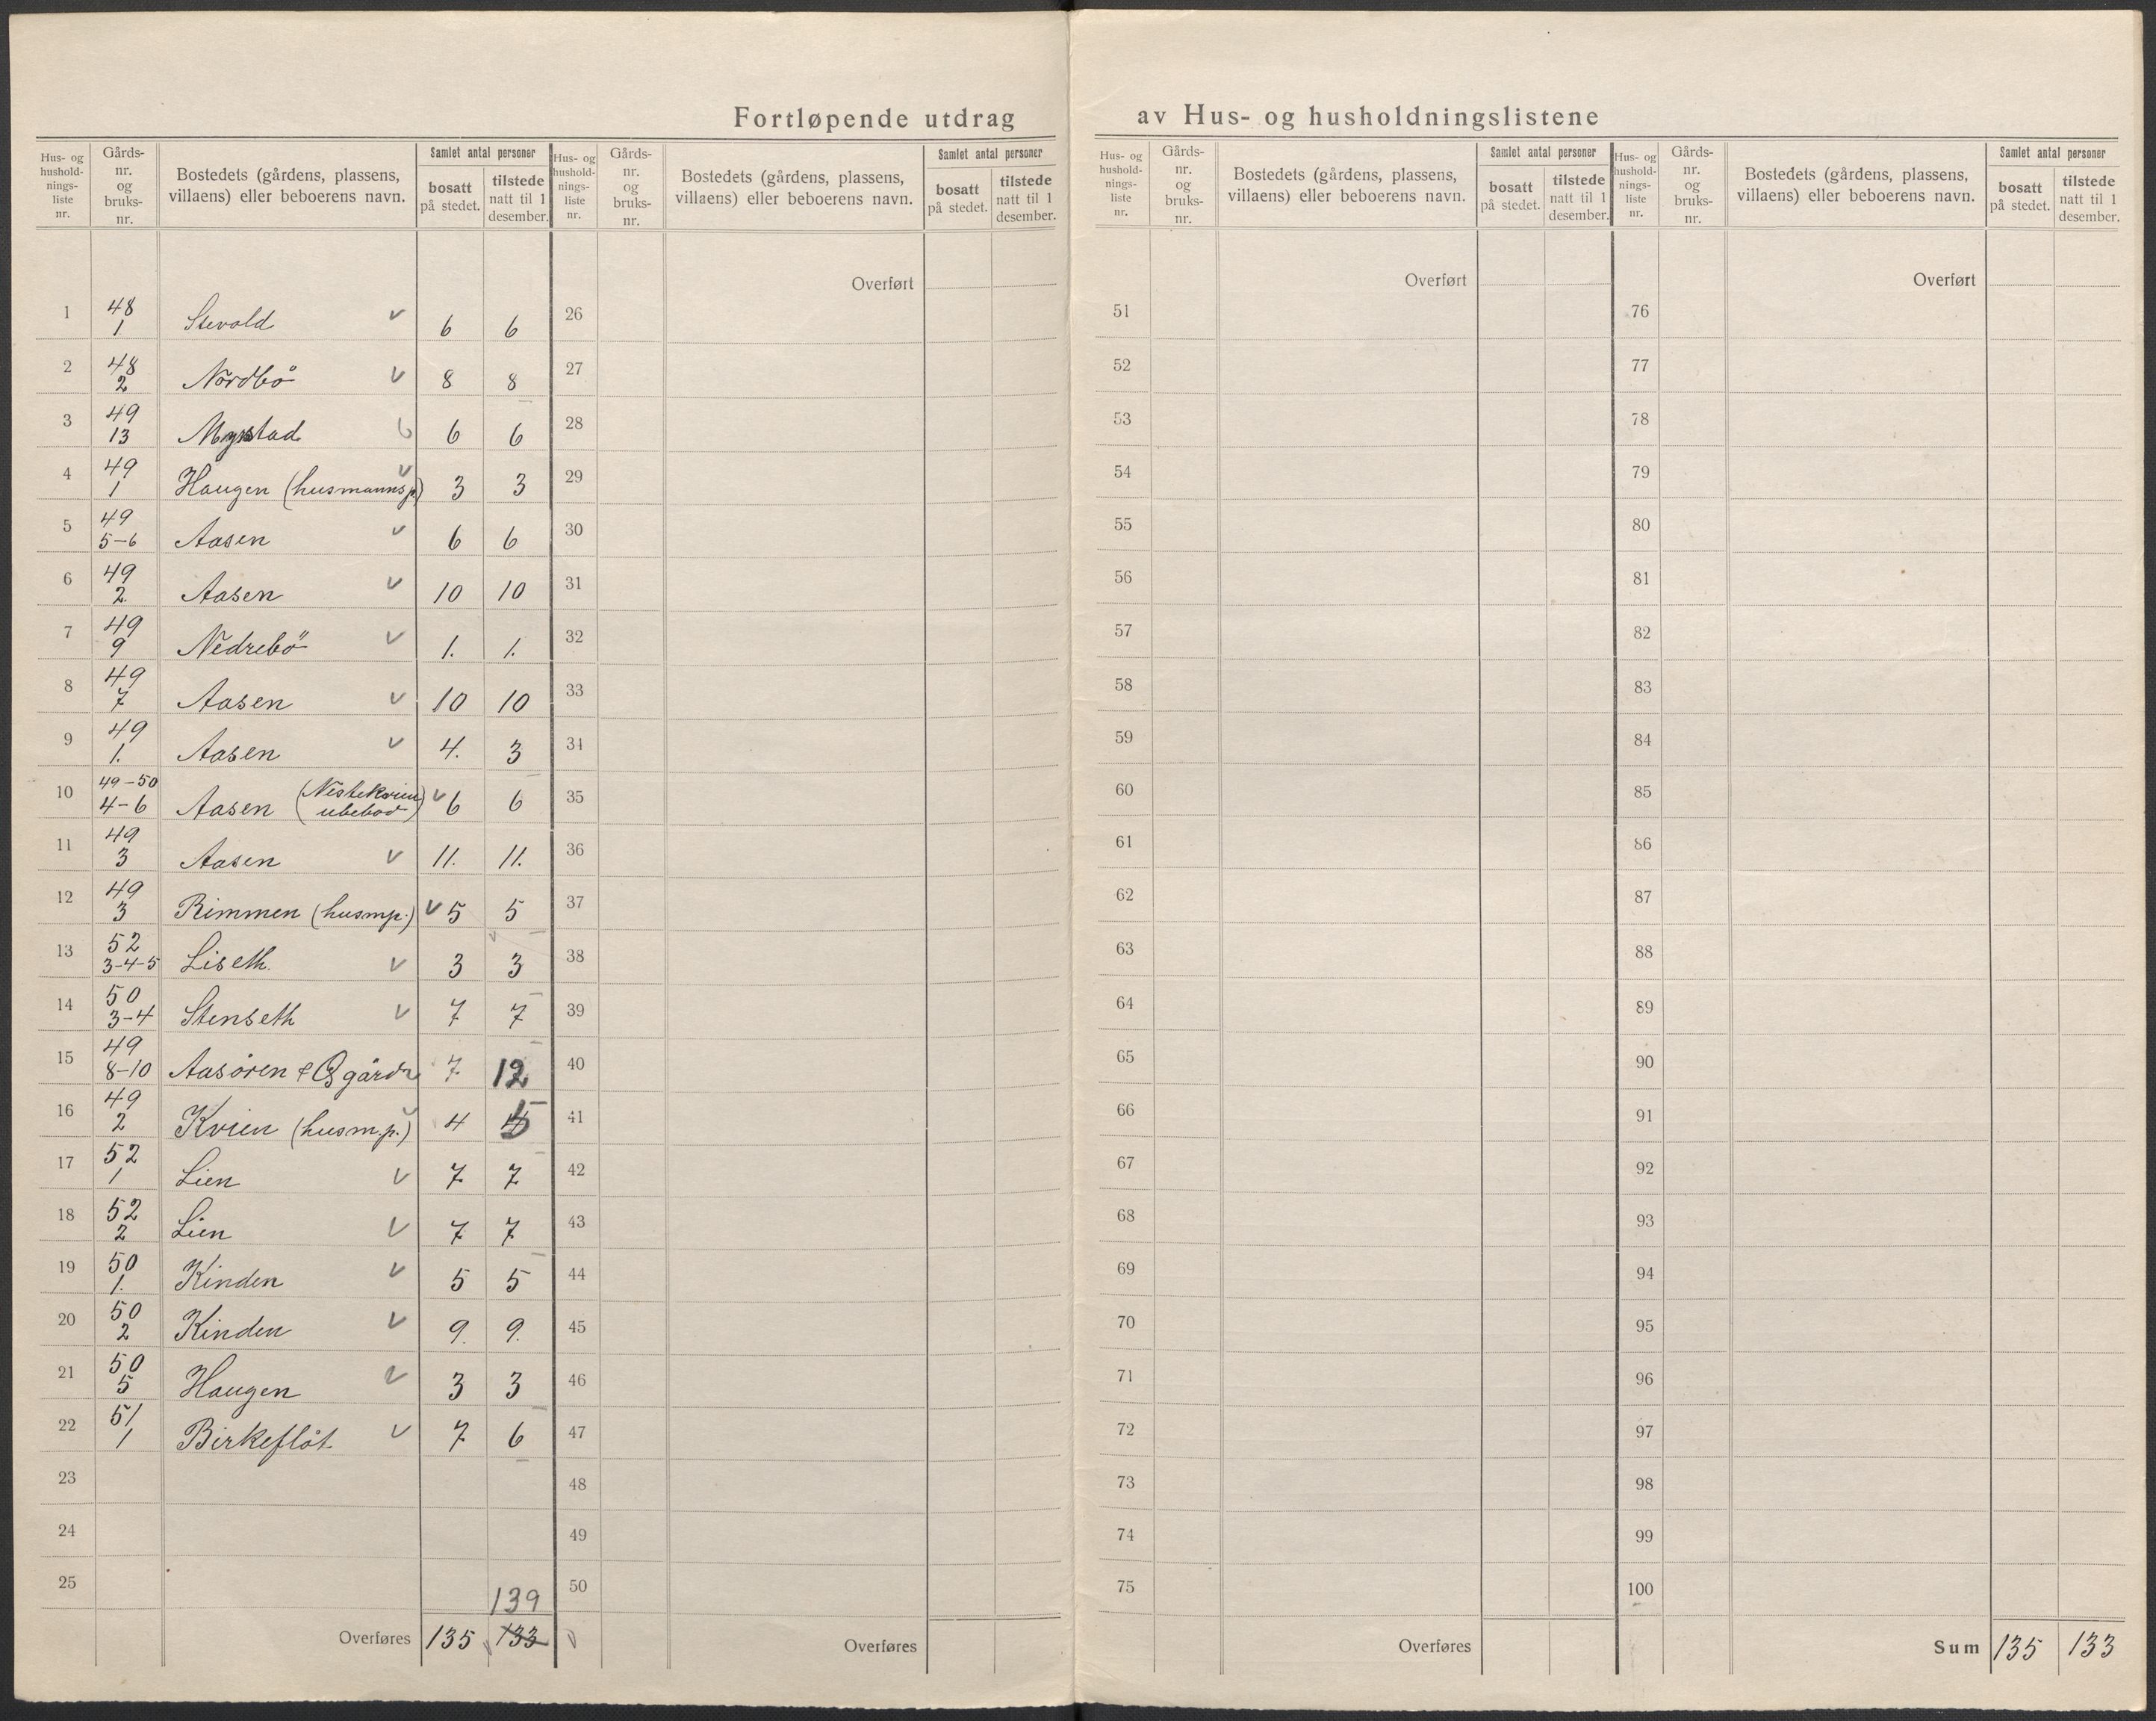 Fortløpende utdrag av Hus- og husholdningslistene
Hus- og hushold-nings-liste nr. | Gårds-nr. og bruks-nr. | Bostedets (gårdens, plassens, villaens) eller beboerens navn. | Samlet antal personer | bosatt på stedet. | tilstede natt til 1 desember.
Hus- og hushold-nings-liste nr. | Gårds-nr. og bruks-nr. | Bostedets (gårdens, plassens, villaens) eller beboerens navn. | Samlet antal personer | bosatt på stedet. | tilstede natt til 1 desember.
Hus- og hushold-nings-liste nr. | Gårds-nr. og bruks-nr. | Bostedets (gårdens, plassens, villaens) eller beboerens navn. | Samlet antal personer | bosatt på stedet. | tilstede natt til 1 desember.
Hus- og hushold-nings-liste nr. | Gårds-nr. og bruks-nr. | Bostedets (gårdens, plassens, villaens) eller beboerens navn. | Samlet antal personer | bosatt på stedet. | tilstede natt til 1 desember.
Overført Overført Overført
1 48 1. Stevold v 6 6 26 51 76
2 48 2 Nordbö v 8 8 27 52 77
3 49 13 Mystad 6 6 28 53 78
4 49 1 Haugen (husmannsp.) v 3 3 29 54 79
5 49 5-6 Aasen v 6 6 30 55 80
6 49 2. Aasen v 10 10 31 56 81
7 49 9 Nedrebö v 1. 1. 32 57 82
8 49 7 Aasen v 10 10 33 58 83
9 49 1. Aasen v 4. 3 34 59 84
10 49-50 4-6 Aasen (Nestekvien ubebod) v 6 6 35 60 85
11 49 3 Aasen v 11. 11. 36 61 86
12 49 3 Rimmen (husmp.) v 5 5 37 62 87
13 52 3-4-5 Liseth. v 3 3 38 63 88
14 50 3-4 Stenseth v 7 7 39 64 89
15 49 8-10 Aasören & 7 12 40 65 90
16 49 2 Kvien (husm.p.) v 4 5 41 66 91
17 52 1 Lien v 7 7 42 67 92
18 52 2 Lien v 7 7 43 68 93
19 50 1. Kinden v 5 5 44 69 94
20 50 2 Kinden v 9. 9. 45 70 95
21 50 5 Haugen v 3 3 46 71 96
22 51 1 Birkeflot v 7 6 47 72 97
23 48 73 98
24 49 74 99
25 139 50 75 100
Overføres 135 133 Overføres Overføres Sum 135 133